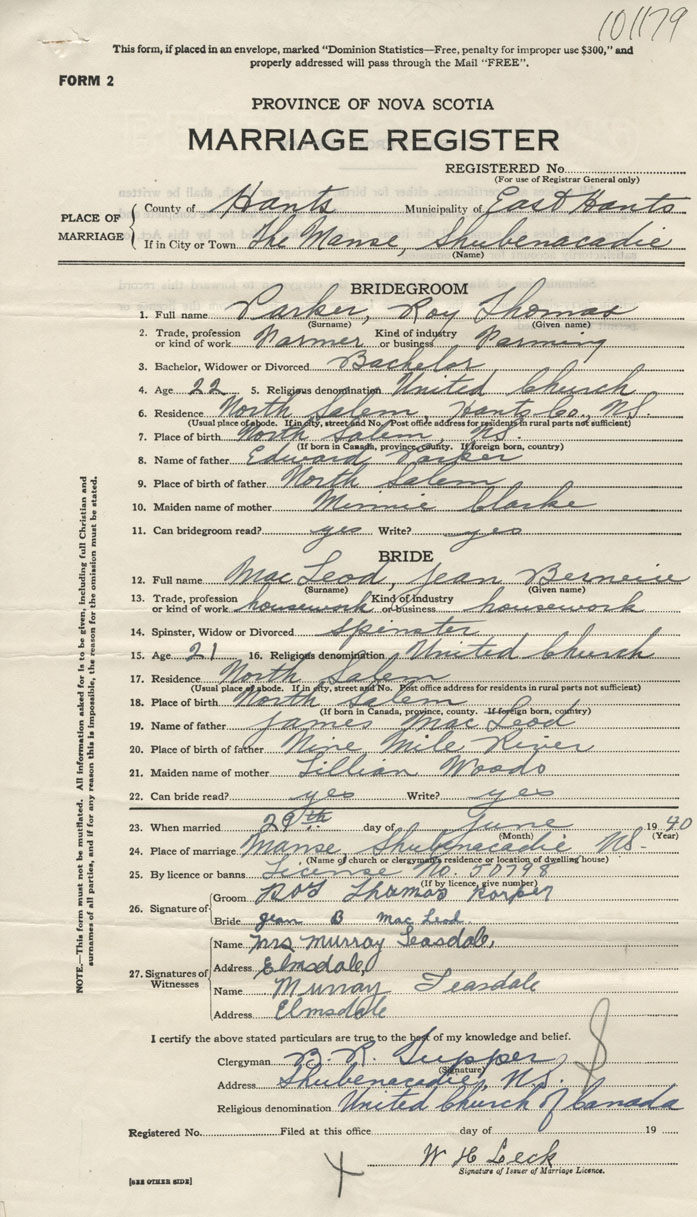 101179
This form, if placed in an envelope, marked "Dominion Statistics—Free, penalty for improper use $300," and
properly addressed will pass through the Mail "FREE".
FORM 2
PROVINCE OF NOVA SCOTIA
MARRIAGE REGISTER
REGISTERED No.
(For use of Registrar General only)
PLACE OF MARRIAGE
County of Hants Municipality of East Hants
If in City or Town The Manse, Shubenacadie
(Name)
BRIDEGROOM
1. Full name Parker, Roy Thomas
(Surname) (Given name)
2. Trade, profession or kind of work Farmer Kind of industry or business Farming
3. Bachelor, Widower or Divorced Bachelor
4. Age 22 5. Religious denomination United Church
6. Residence North Salem, Hants Co., N.S.
(Usual place of abode. If in city, street and No. Post office address for residents in rural parts not sufficient)
7. Place of birth North Salem, N.S.
(If born in Canada, province, county. If foreign born, country)
8. Name of father Edward Parker
9. Place of birth of father North Salem
10. Maiden name of mother Minnie Clarke
11. Can bridegroom read? yes Write? yes
BRIDE
12. Full name MacLeod, Jean Berneice
(Surname) (Given name)
13. Trade, profession or kind of work housework Kind of industry or business housework
14. Spinster, Widow or Divorced spinster
15. Age 21 16. Religious denomination United Church
17. Residence North Salem
(Usual place of abode. If in city, street and No. Post office address for residents in rural parts not sufficient)
18. Place of birth North Salem
(If born in Canada, province, county. If foreign born, country)
19. Name of father James MacLeod
20. Place of birth of father Nine Mile River
21. Maiden name of mother Lillian Woods
22. Can bride read? yes Write? yes
23. When married 29th day of June 1940
(Month) (Year)
24. Place of marriage Manse, Shubenacadie N.S.
(Name of church or clergyman's residence or location of dwelling house)
25. By licence or banns License No. 50798
(If by licence, give number)
26. Signature of
Groom Roy Thomas Parker
Bride Jean B MacLeod
27. Signatures of Witnesses
Name Mrs Murray Teasdale,
Address Elmsdale,
Name Murray Teasdale
Address Elmsdale
I certify the above stated particulars are true to the best of my knowledge and belief.
Clergyman B. R. Tupper
(Signature)
Address Shubenacadie, N.S.
Religious denomination United Church of Canada
Registered No. Filed at this office day of 19
W H Leck
Signature of Issuer of Marriage Licence.
[SEE OTHER SIDE]
NOTE.—This form must not be mutilated. All information asked for is to be given, including full Christian and
surnames of all parties, and if for any reason this is impossible, the reason for the omission must be stated.